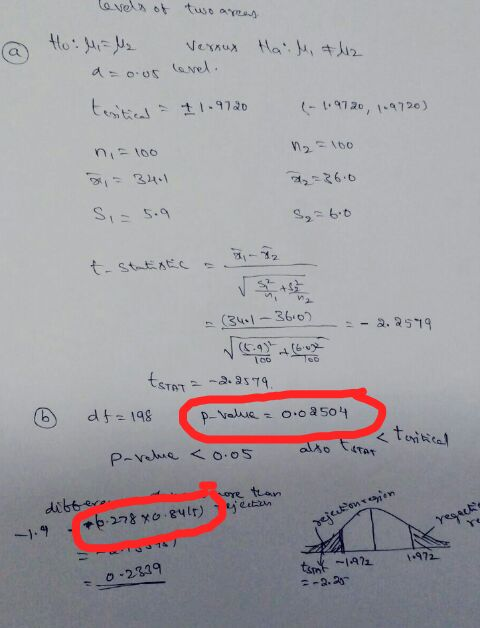 levels of two areas
(a) H₀: μ₁ = μ₂ versus Ha: μ₁ ≠ μ₂
α = 0.05 level.
t critical = ± 1.9720 (-1.9720, 1.9720)
n₁ = 100 n₂ = 100
x̄₁ = 34.1 x̄₂ = 36.0
S₁ = 5.9 S₂ = 6.0
t-statistic = x̄₁ - x̄₂ / √(S₁²/n₁ + S₂²/n₂)
= (34.1 - 36.0) / √((5.9)²/100 + (6.0)²/100) = -2.2579
tSTAT = -2.2579.
(b) df = 198 P-value = 0.02504
P-value < 0.05 also tSTAT < tcritical
more than
rejection
-1.9 0.278 × 0.84(5)
= 0.2339
rejection region
tSTAT = -2.25
-1.972 1.972